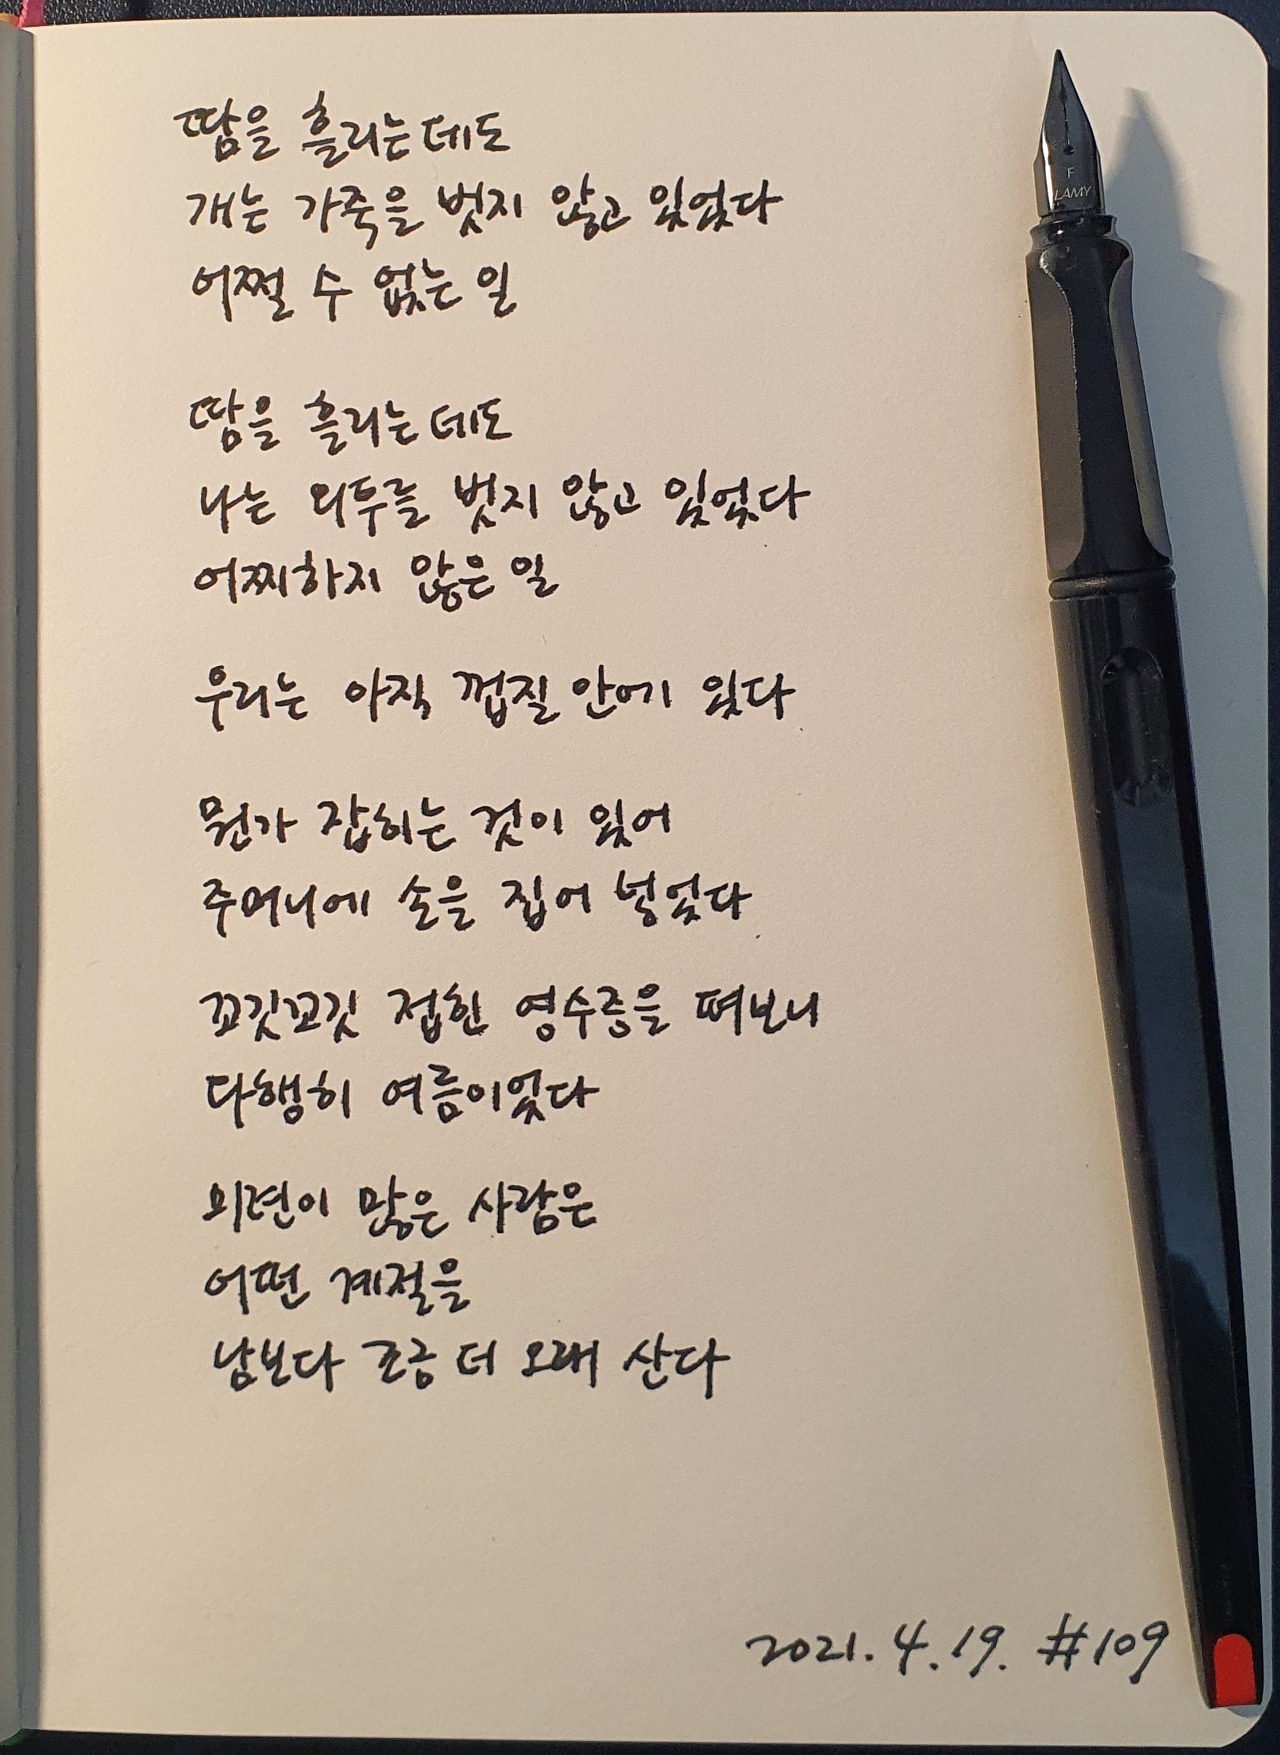 땀을 흘리는데도
개는 가죽을 벗지 않고 있었다
어쩔 수 없는 일
땀을 흘리는데도
나는 외투를 벗지 않고 있었다
어찌하지 않은 일
우리는 아직 껍질 안에 있다
뭔가 잡히는 것이 있어
주머니에 손을 집어 넣었다
꼬깃꼬깃 접힌 영수증을 펴보니
다행히 여름이었다
미련이 많은 사람은
어떤 계절을
남보다 조금 더 오래 산다
2021. 4. 19. #109
F
LAMY